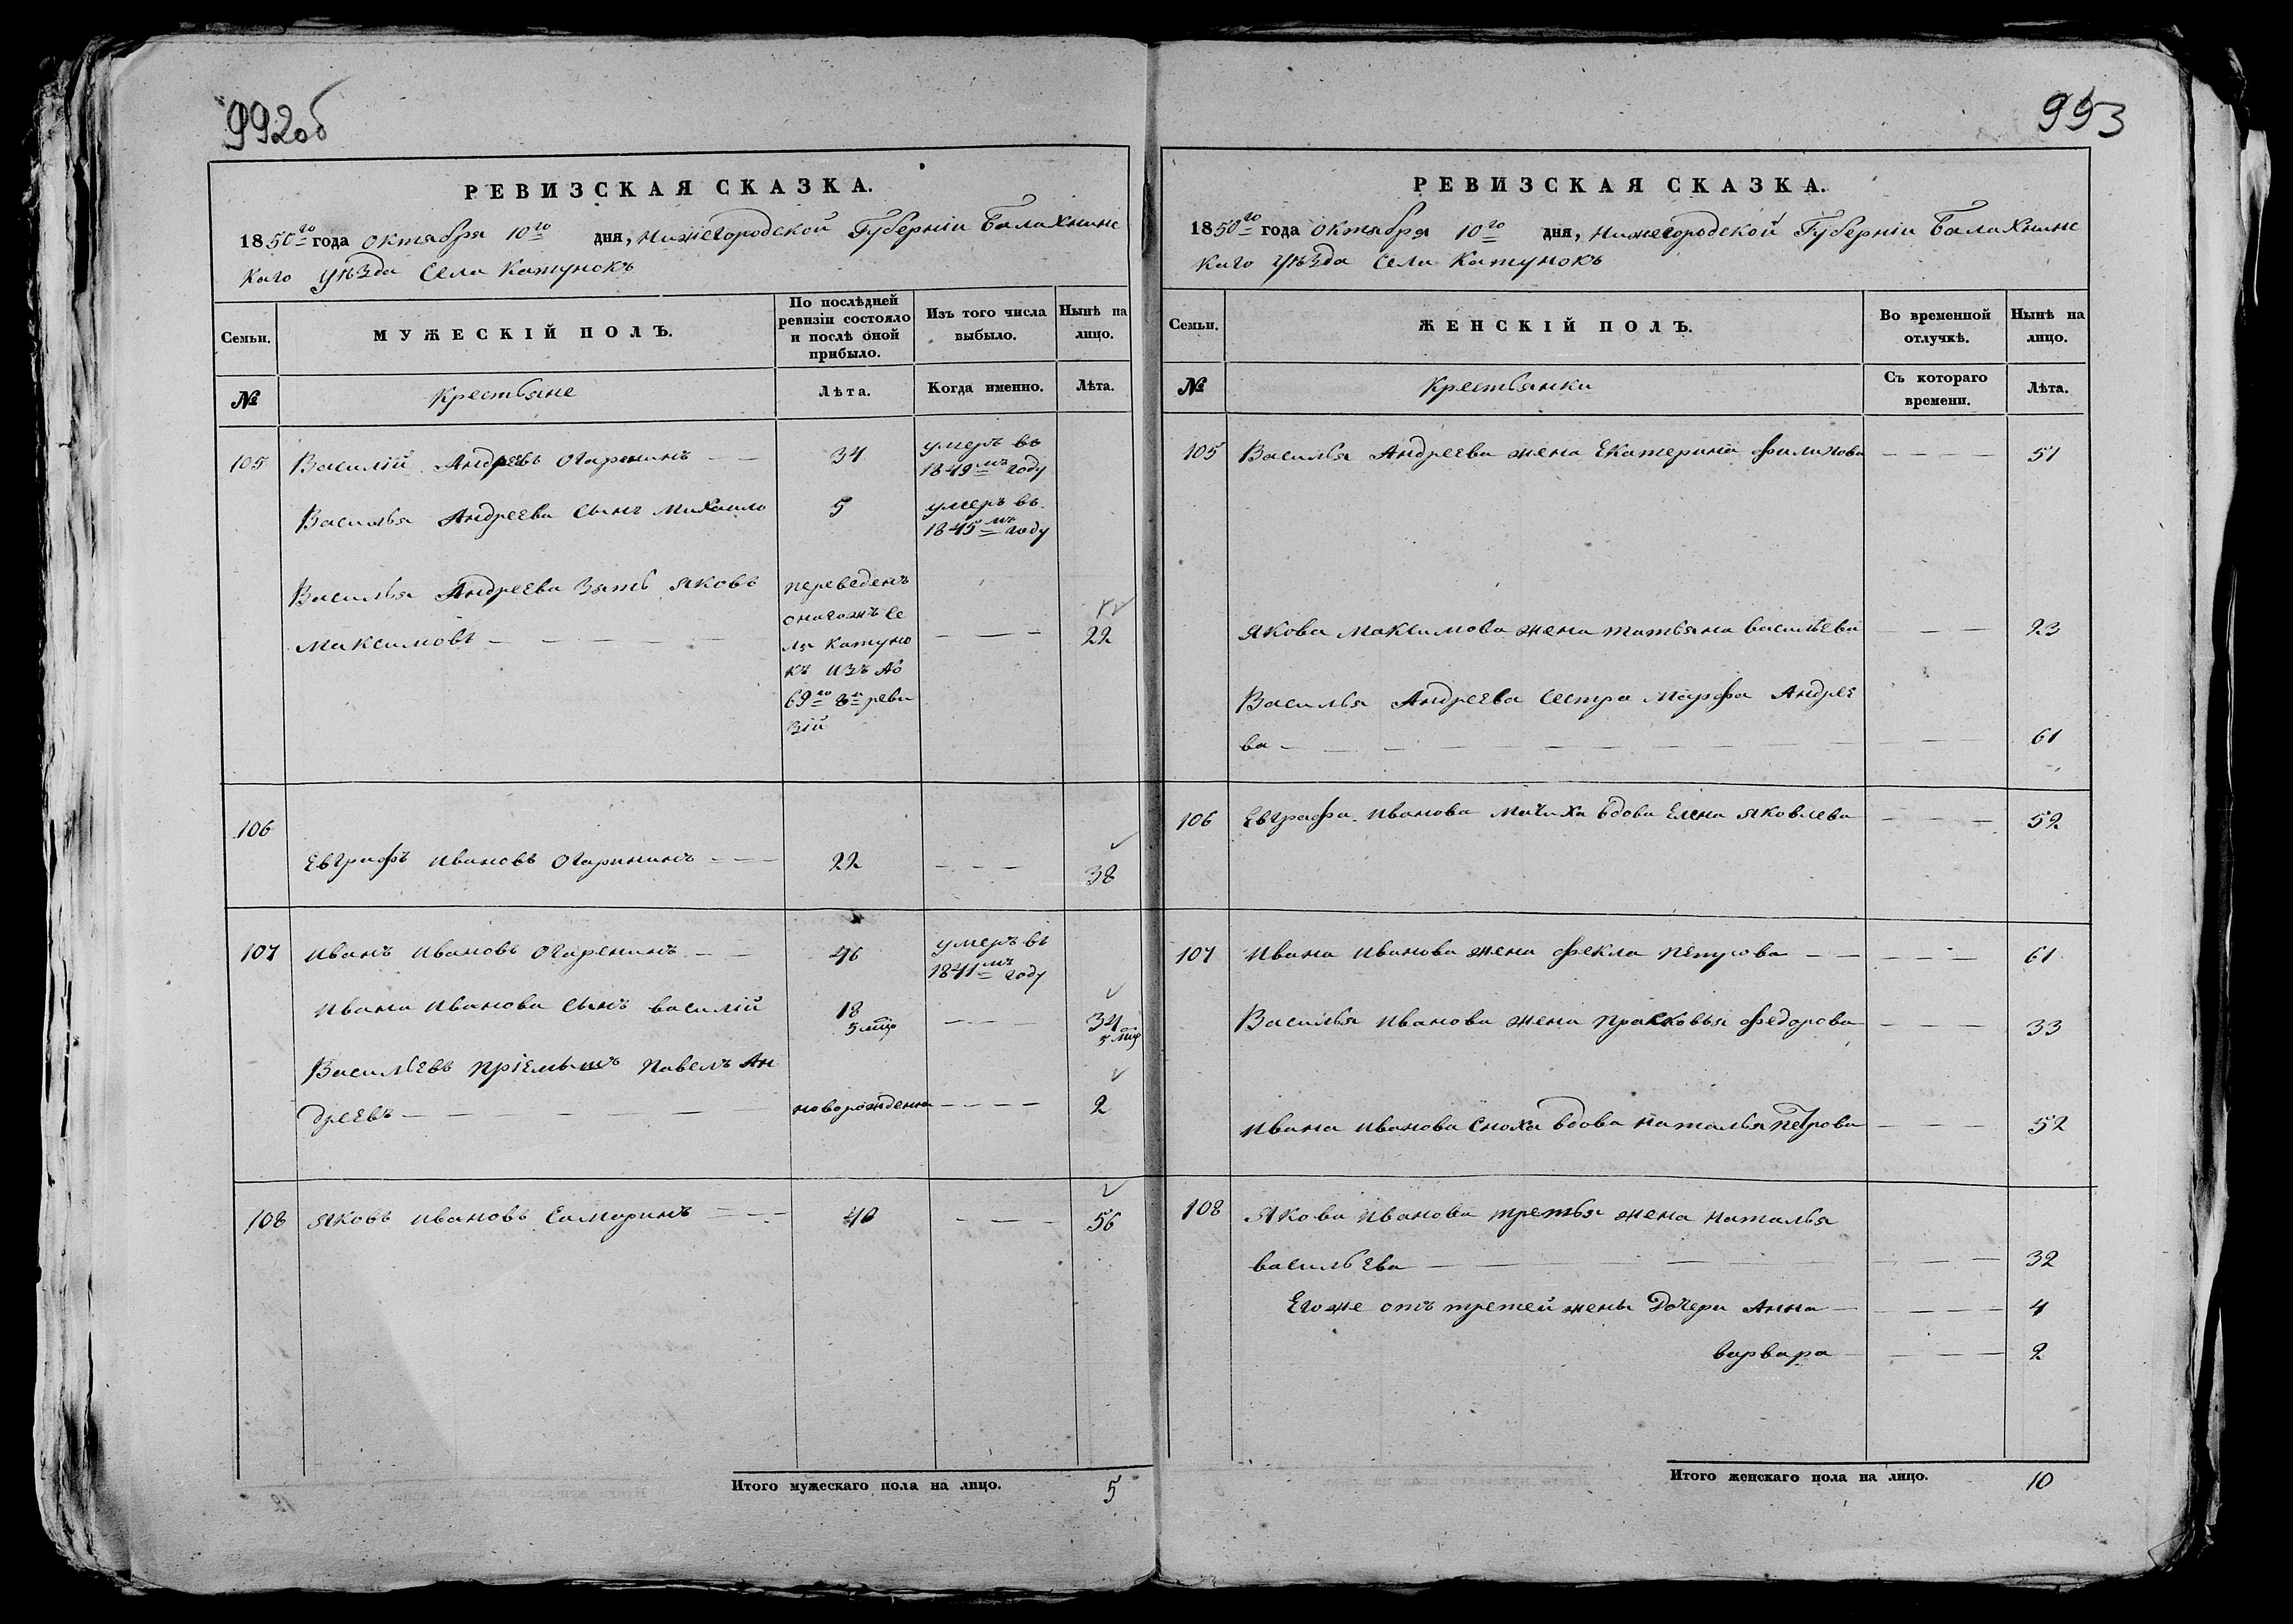 992об
РЕВИЗСКАЯ СКАЗКА.
1850го года октября 10го дня, Нижегородской Губернiи Балахнинс
каго уѣзда Села Катунокъ
Семьи.
МУЖЕСКІЙ ПОЛЪ.
По послѣдней ревизіи состояло и послѣ оной прибыло.
Изъ того числа выбыло.
Нынѣ на лицо.
№
Крестьяне
Лѣта.
Когда именно.
Лѣта.
105 Василій Андреевъ Огаренинъ 34 умеръ въ
1849мъ году
Василья Андреева сынъ Михаило 5 умеръ въ
1845мъ году
Василья Андреева зять Яковъ переведенъ
онагожъ се
Максимовъ ла Катуно 22
къ изъ №
69го 8й реви
зій
106
Евграфъ Ивановъ Огаринилъ 22 38
107 Иванъ Ивановъ Огаренинъ 46 умеръ въ
1841мъ году
Ивана Иванова сынъ Василій 18 34
5 мцо 5 мцо
Васильевъ пріемышъ Павелъ Ан
дреевъ новорожденн 2
108 Яковъ Ивановъ Самаринъ 40 56
Итого мужескаго пола на лицо. 5
993
РЕВИЗСКАЯ СКАЗКА.
1850го года октября 10го дня, Нижегородской Губерніи Балахнинс
каго уѣзда Села Катунокъ
Семьи.
ЖЕНСКІЙ ПОЛЪ.
Во временной отлучкѣ.
Нынѣ на лицо.
№
Крестьянки
Съ котораго времени.
Лѣта.
105 Василья Андреева жена Екатерина Филипова 51
Якова Максимова жена Татьяна Васильева 23
Василья Андреева сестра Марфа Андрее
ва 61
106 Евграфа Иванова мачиха вдова Елена Яковлева 52
107 Ивана Иванова жена Фекла 61
Василья Иванова жена Прасковья Федорова 33
Ивана Иванова сноха вдова Наталья Петрова 52
108 Якова Иванова третья жена Наталья
Васильева 32
Егоже отъ третей жены дочери Анна 4
Варвара 2
Итого женскаго пола на лицо. 10